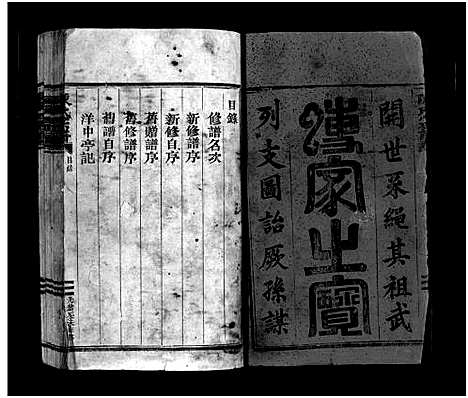 開世爰繩其祖武
傳家之寶
列支圖詒厥孫謀
目錄
修譜名次
新修譜序
新修自序
舊贈譜序
舊修譜序
初譜自序
洋中亭記
目錄